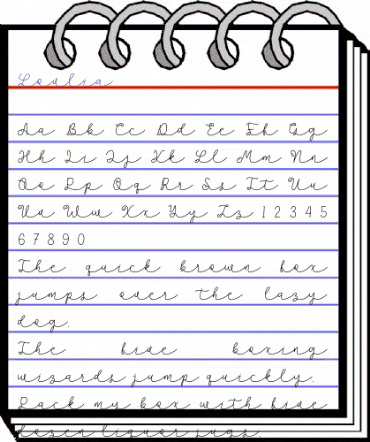 Loulia
Aa Bb Cc Dd Ee Fh Gg
Hh Ii Jj Kk Ll Mm Nn
Oo Pp Qq Rr Ss Tt Uu
Vv Ww Xx Yy Zz 1 2 3 4 5
6 7 8 9 0
The quick brown fox
jumps over the lazy
dog.
The five boxing
wizards jump quickly.
Pack my box with five
dozen liquor jugs.